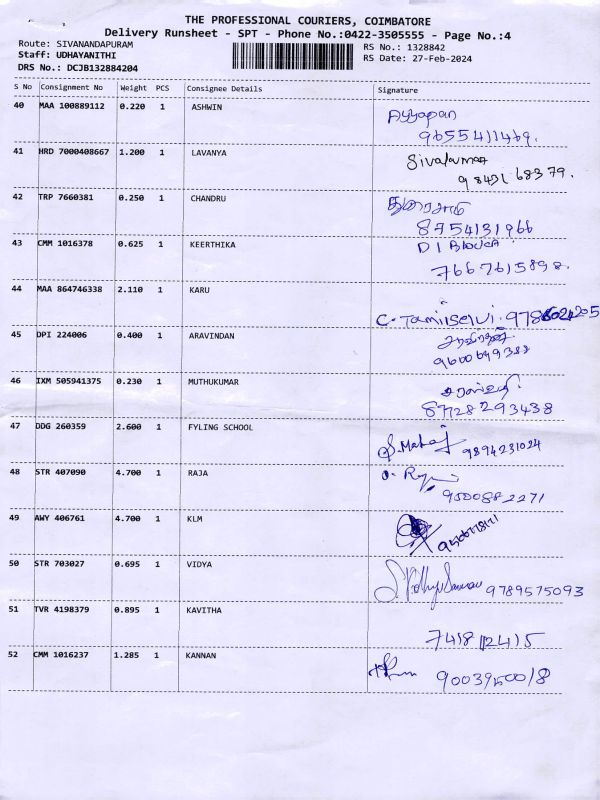 THE PROFESSIONAL COURIERS, COIMBATORE
Delivery Runsheet - SPT - Phone No.:0422-3505555 - Page No.:4
Route: SIVANANDAPURAM
RS No.: 1328842
Staff: UDHAYANITHI
RS Date: 27-Feb-2024
DRS No.: DCJB132884204
S No Consignment No Weight PCS Consignee Details Signature
40 MAA 100889112 0.220 1 ASHWIN Ayyapan
9655411469.
41 HRD 7000408667 1.200 1 LAVANYA
98431 68379.
42 TRP 7660381 0.250 1 CHANDRU துரைசாமி
8754131966
43 CMM 1016378 0.625 1 KEERTHIKA D1 Block
7667615898.
44 MAA 864746338 2.110 1 KARU
C. Tamilselvi.
45 DPI 224006 0.400 1 ARAVINDAN
46 IXM 505941375 0.230 1 MUTHUKUMAR சரஸ்வதி
87728293438
47 DDG 260359 2.600 1 FYLING SCHOOL
9894231024
48 STR 407090 4.700 1 RAJA
9500882271
49 AWY 406761 4.700 1 KLM
50 STR 703027 0.695 1 VIDYA
9789575093
51 TVR 4198379 0.895 1 KAVITHA
7418112415
52 CMM 1016237 1.285 1 KANNAN
9003950018